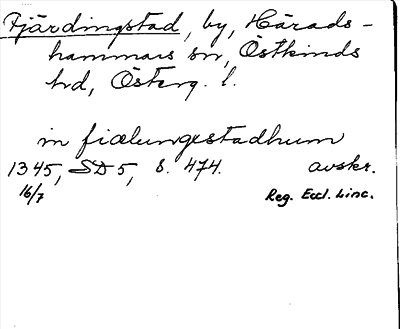 Fjärdingstad, by, Härads-
hammars sn, Östkinds
hd, Österg. l.
in fiælungestadhum
1345, SD 5, s. 474. avskr.
16/7 Reg. Eccl. Linc.